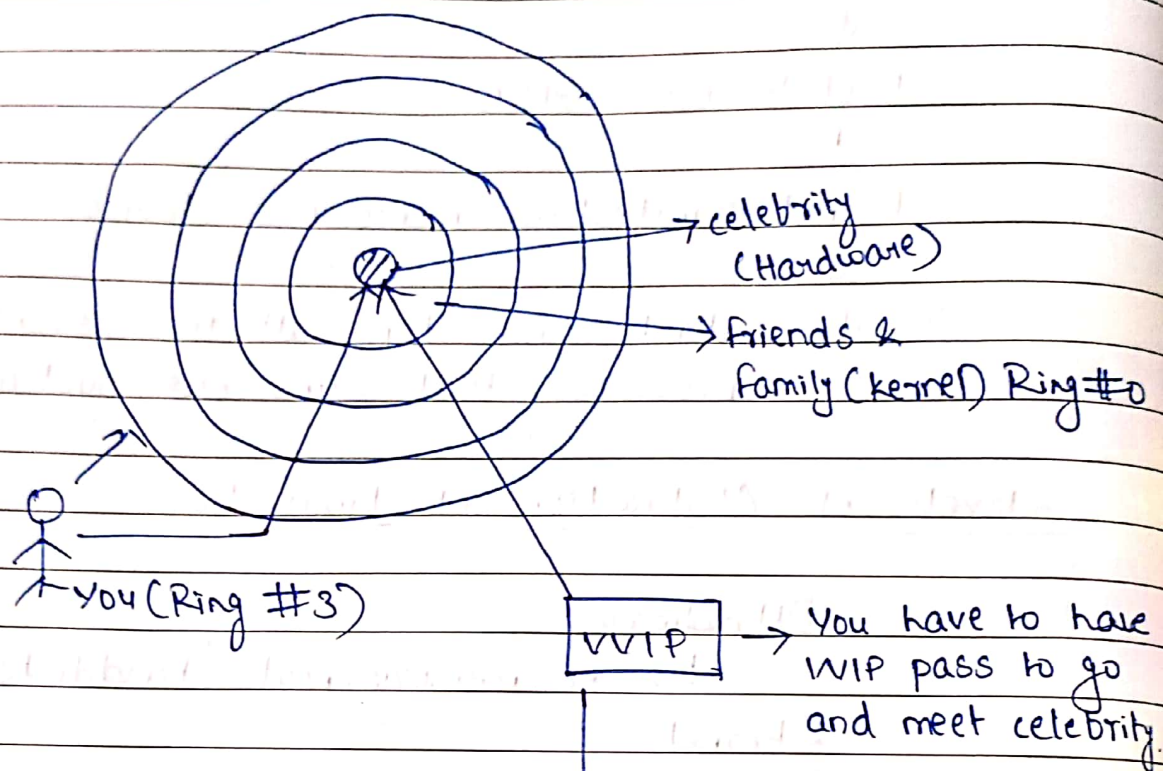 celebrity
(Hardware)
Friends &
Family (kernel) Ring #0
You (Ring #3)
VVIP
You have to have
VVIP pass to go
and meet celebrity.